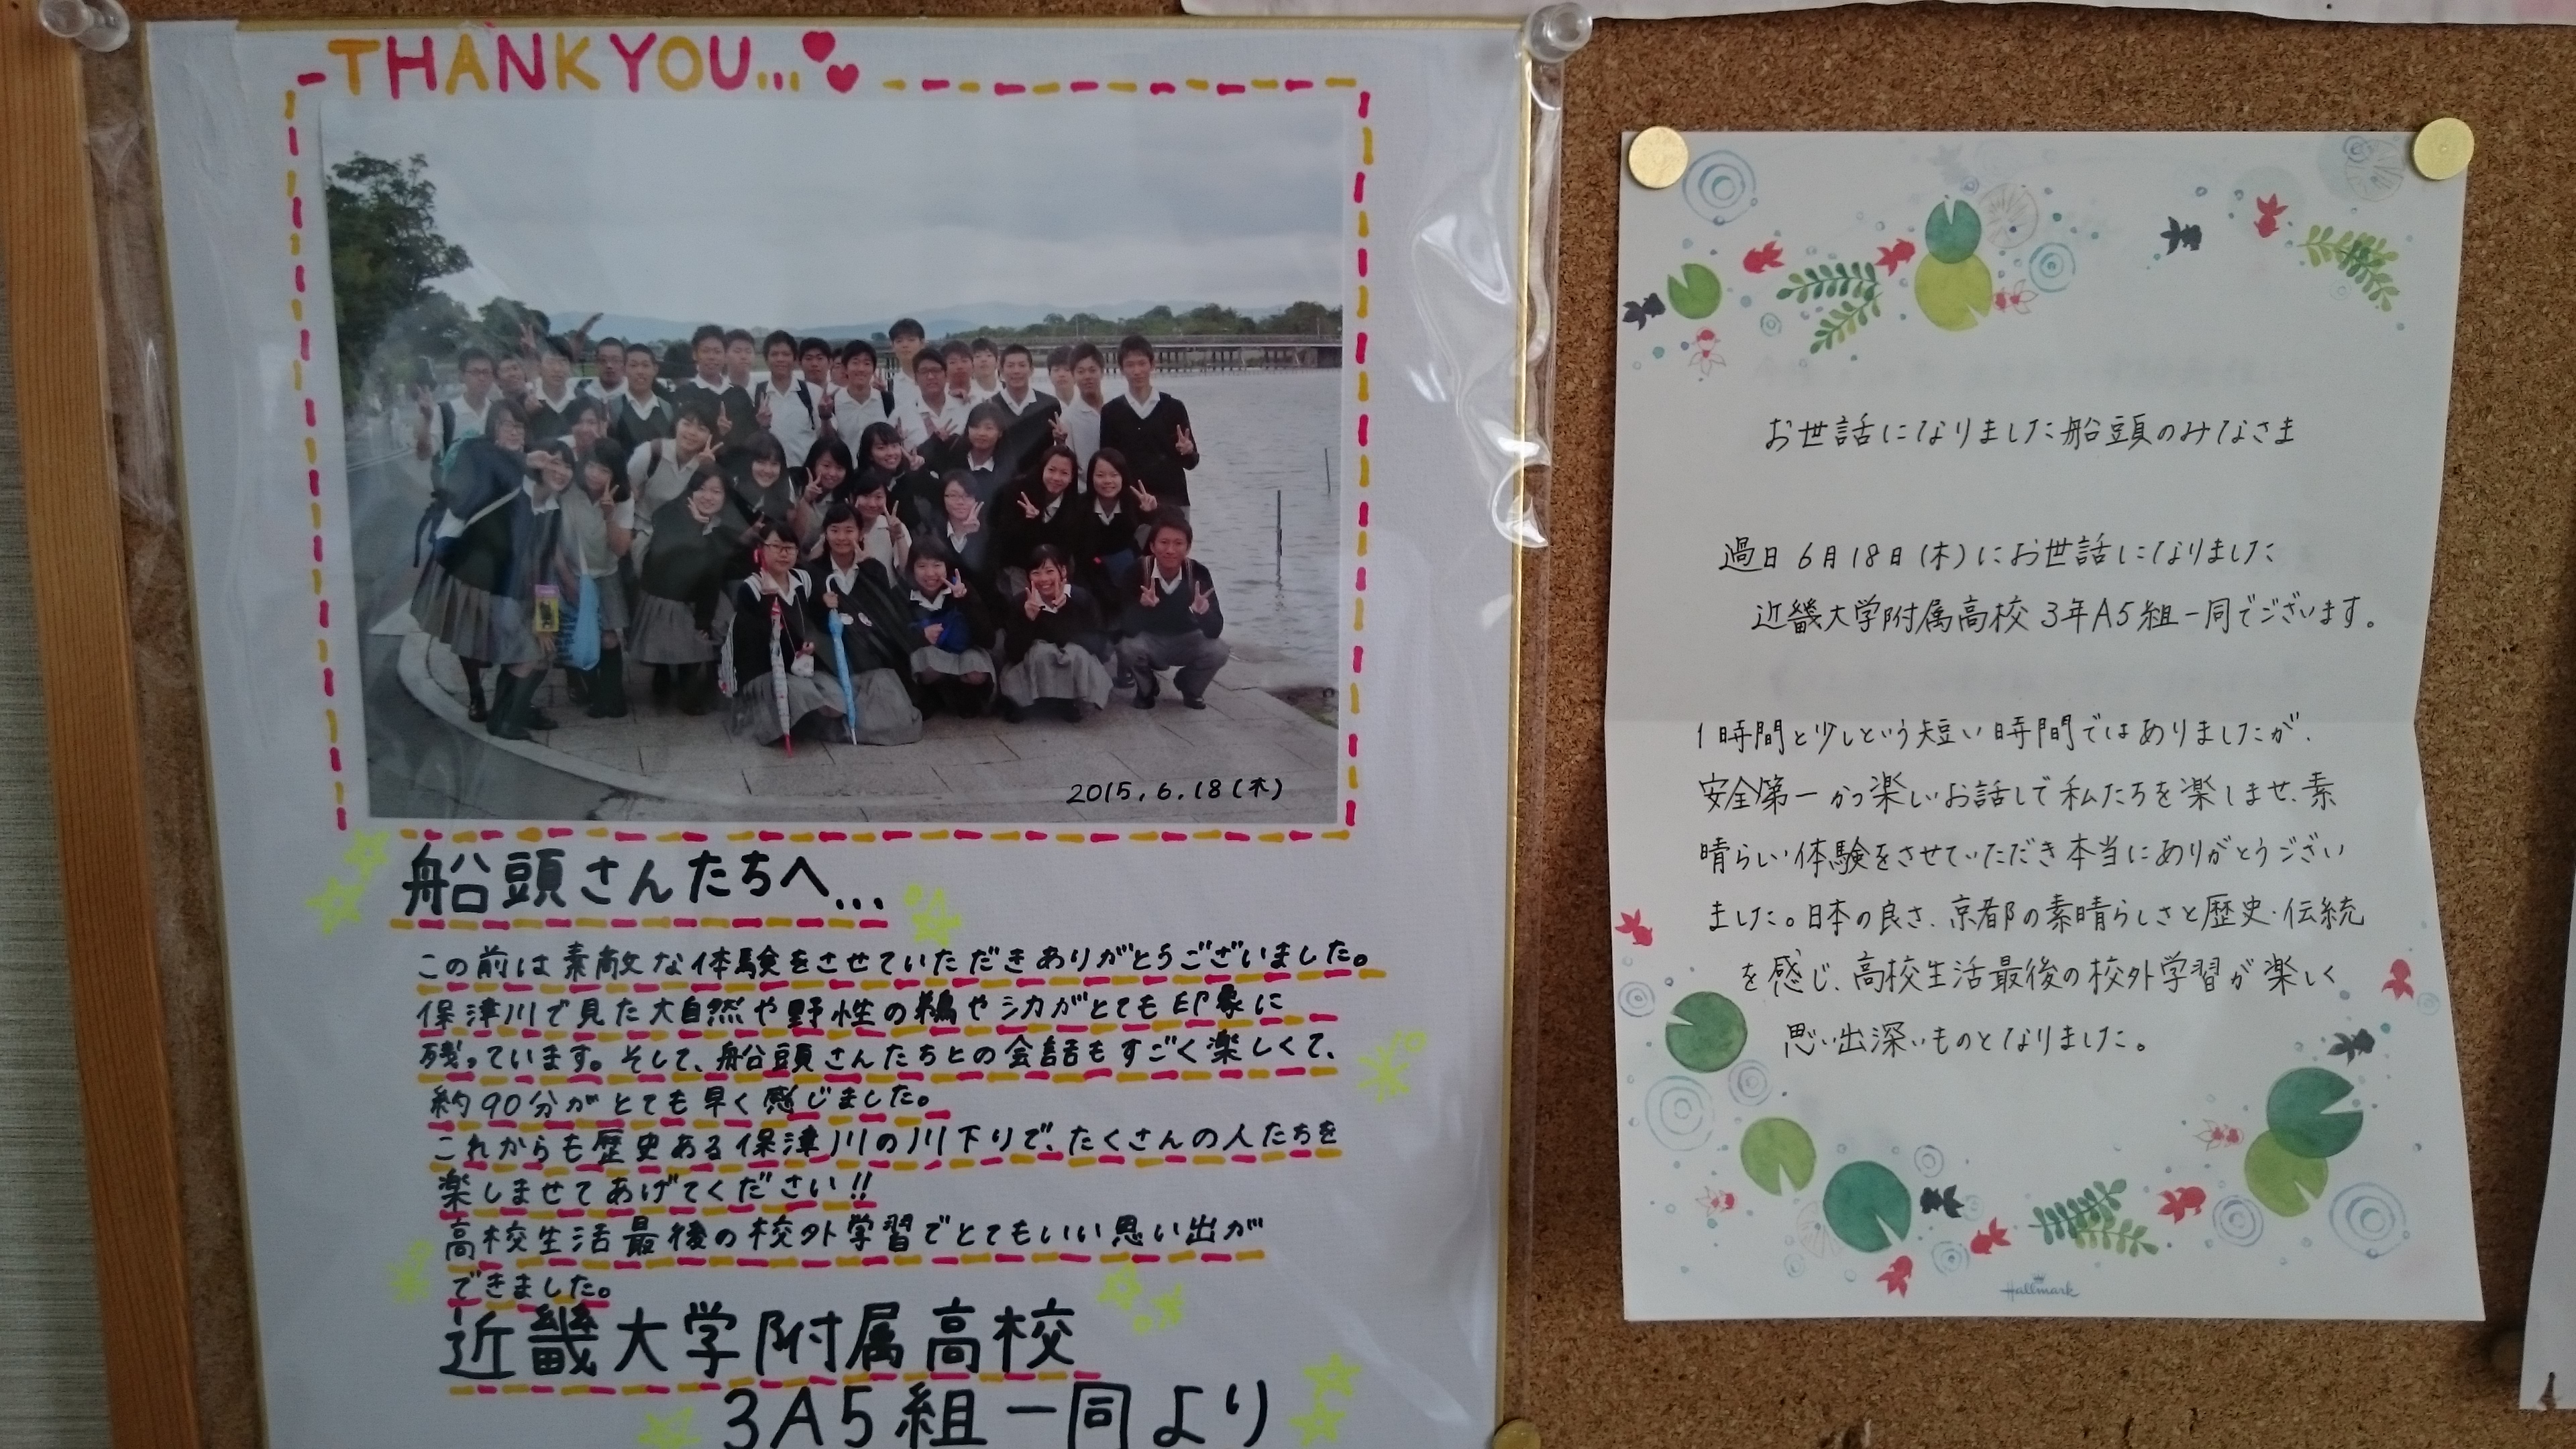 THANK YOU...
2015.6.18(木)
船頭さんたちへ...
この前は素敵な体験をさせていただきありがとうございました。
保津川で見た大自然や野性の鵜やシカがとても印象に
残っています。そして、船頭さんたちとの会話もすごく楽しくて、
約90分がとても早く感じました。
これからも歴史ある保津川の川下りで、たくさんの人たちを
楽しませてあげてください!!
高校生活最後の校外学習でとてもいい思い出が
できました。
近畿大学附属高校
3A5組一同より
お世話になりました船頭のみなさま
過日6月18日(木)にお世話になりました
近畿大学附属高校3年A5組一同でございます。
1時間と少しという短い時間ではありましたが、
安全第一かつ楽しいお話しで私たちを楽しませ、素
晴らしい体験をさせていただき本当にありがとうござい
ました。日本の良さ、京都の素晴らしさと歴史・伝統
を感じ、高校生活最後の校外学習が楽しく
思い出深いものとなりました。
Hallmark